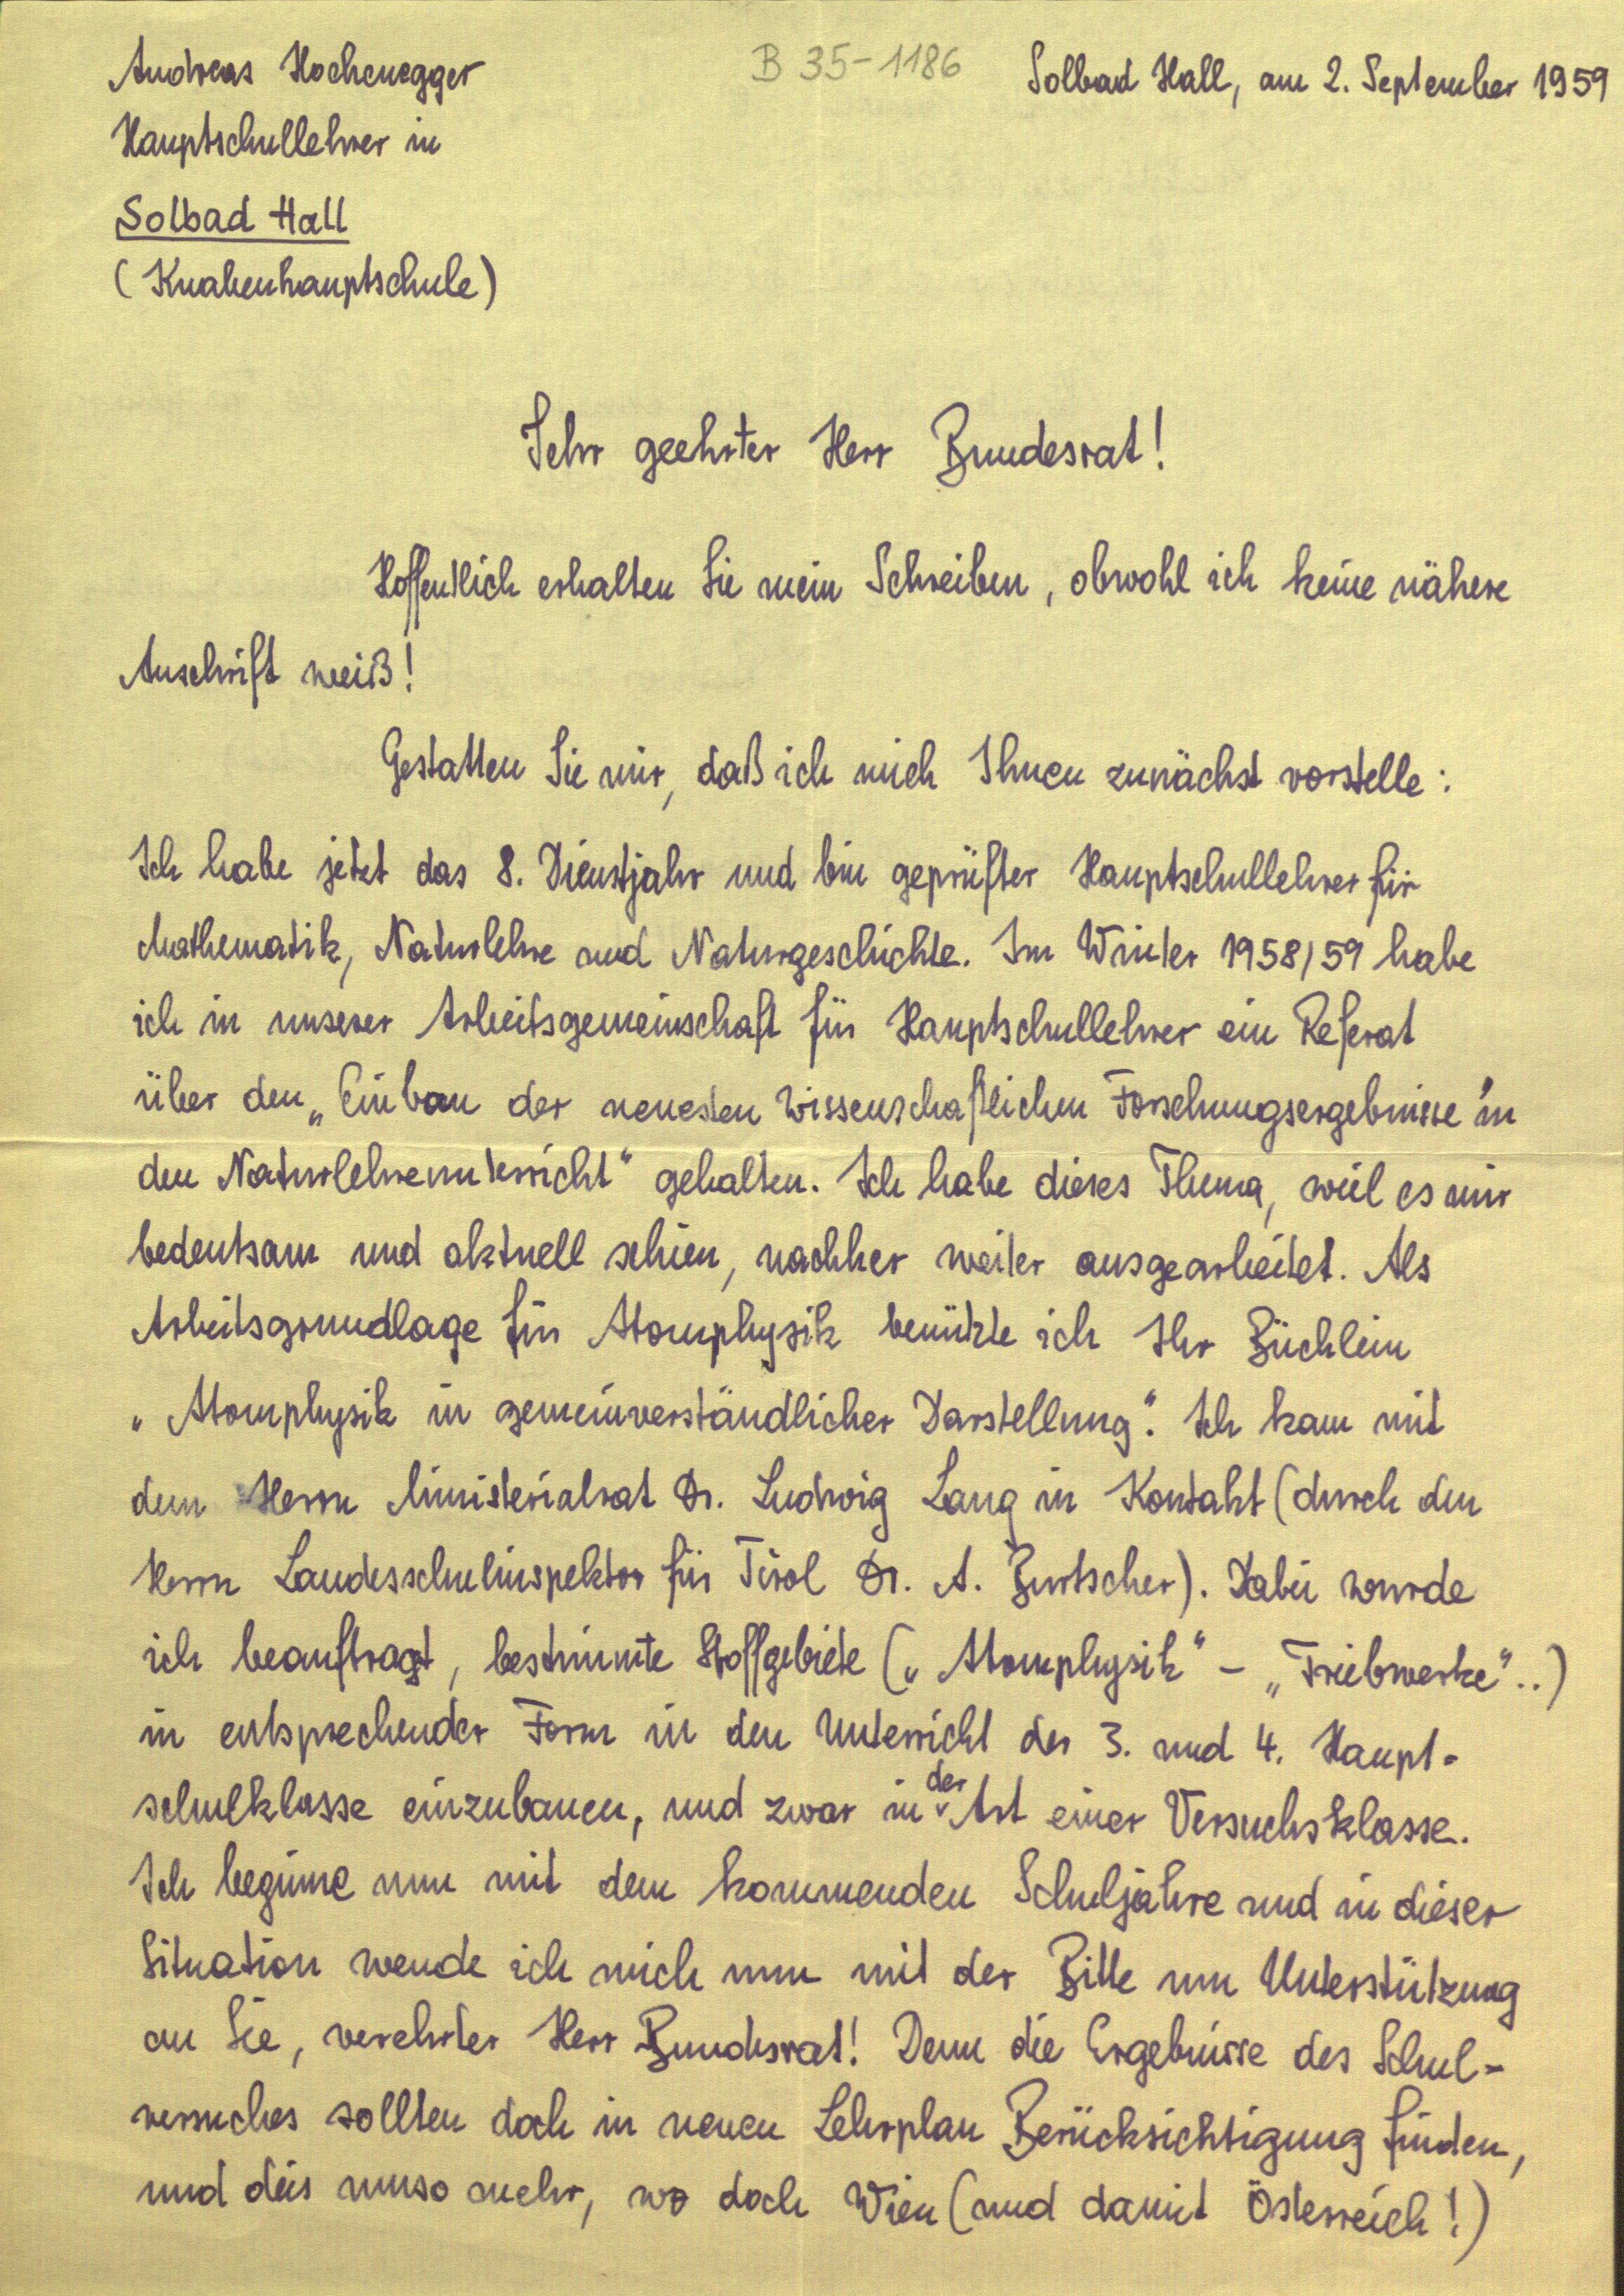 Andreas Hochenegger
B 35-1186
Solbad Hall, am 2. September 1959
Hauptschullehrer in
Solbad Hall
(Knabenhauptschule)
Sehr geehrter Herr Bundesrat!
Hoffentlich erhalten Sie mein Schreiben, obwohl ich keine nähere
Anschrift weiß!
Gestatten Sie mir, daß ich mich Ihnen zunächst vorstelle:
Ich habe jetzt das 8. Dienstjahr und bin geprüfter Hauptschullehrer für
Mathematik, Naturlehre und Naturgeschichte. Im Winter 1958/59 habe
ich in unserer Arbeitsgemeinschaft für Hauptschullehrer ein Referat
über den „Einbau der neuesten wissenschaftlichen Forschungsergebnisse in
den Naturlehreunterricht“ gehalten. Ich habe dieses Thema, weil es mir
bedeutsam und aktuell schien, nachher weiter ausgearbeitet. Als
Arbeitsgrundlage für Atomphysik benützte ich Ihr Büchlein
„Atomphysik in gemeinverständlicher Darstellung“. Ich kam mit
dem Herrn Ministerialrat Dr. Ludwig Lang in Kontakt (durch den
Herrn Landesschulinspektor für Tirol Dr. A. Burtscher). Dabei wurde
ich beauftragt, bestimmte Stoffgebiete („Atomphysik“ – „Triebwerke“..)
in entsprechender Form in den Unterricht der 3. und 4. Haupt-
schulklasse einzubauen, und zwar in der Art einer Versuchsklasse.
Ich beginne nun mit dem kommenden Schuljahre und in dieser
Situation wende ich mich nun mit der Bitte um Unterstützung
an Sie, verehrter Herr Bundesrat! Denn die Ergebnisse des Schul-
versuches sollten doch in neuen Lehrplan Berücksichtigung finden,
und dies umso mehr, wo doch Wien (und damit Österreich!)